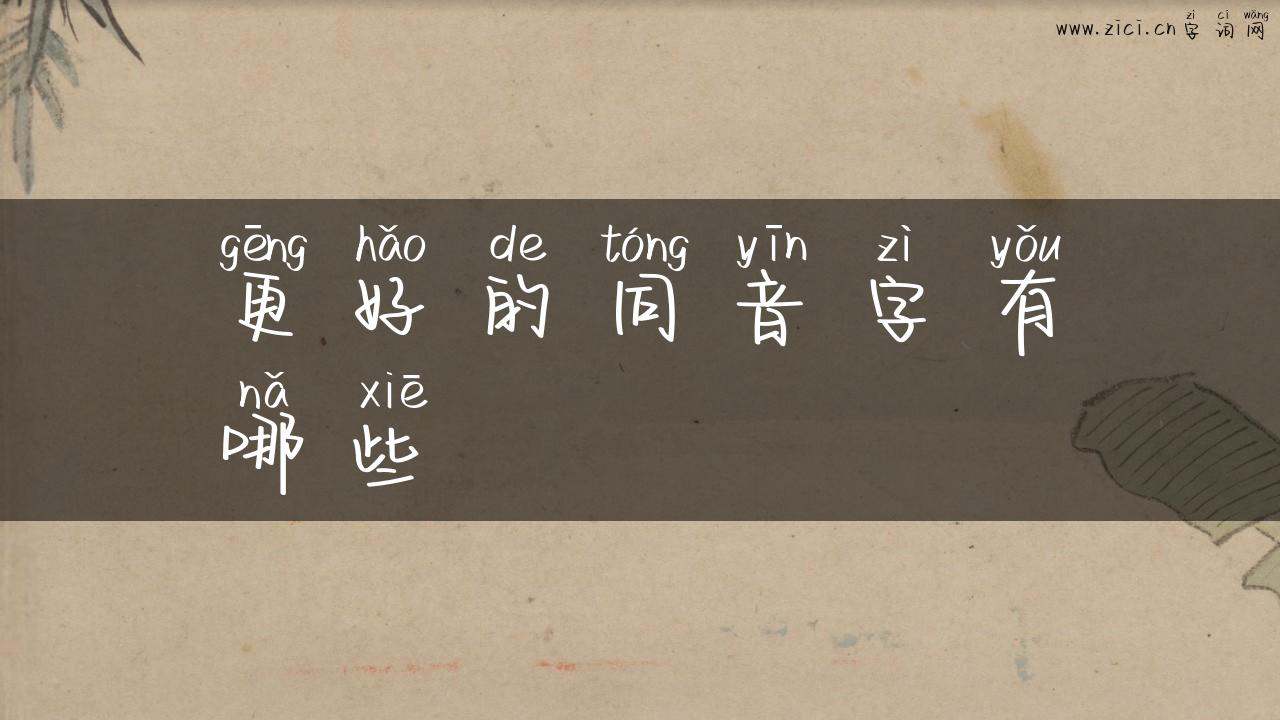 zì cí wǎng
www.zici.cn 字词网
gēng hǎo de tóng yīn zì yǒu
更好的同音字有
nǎ xiē
哪些